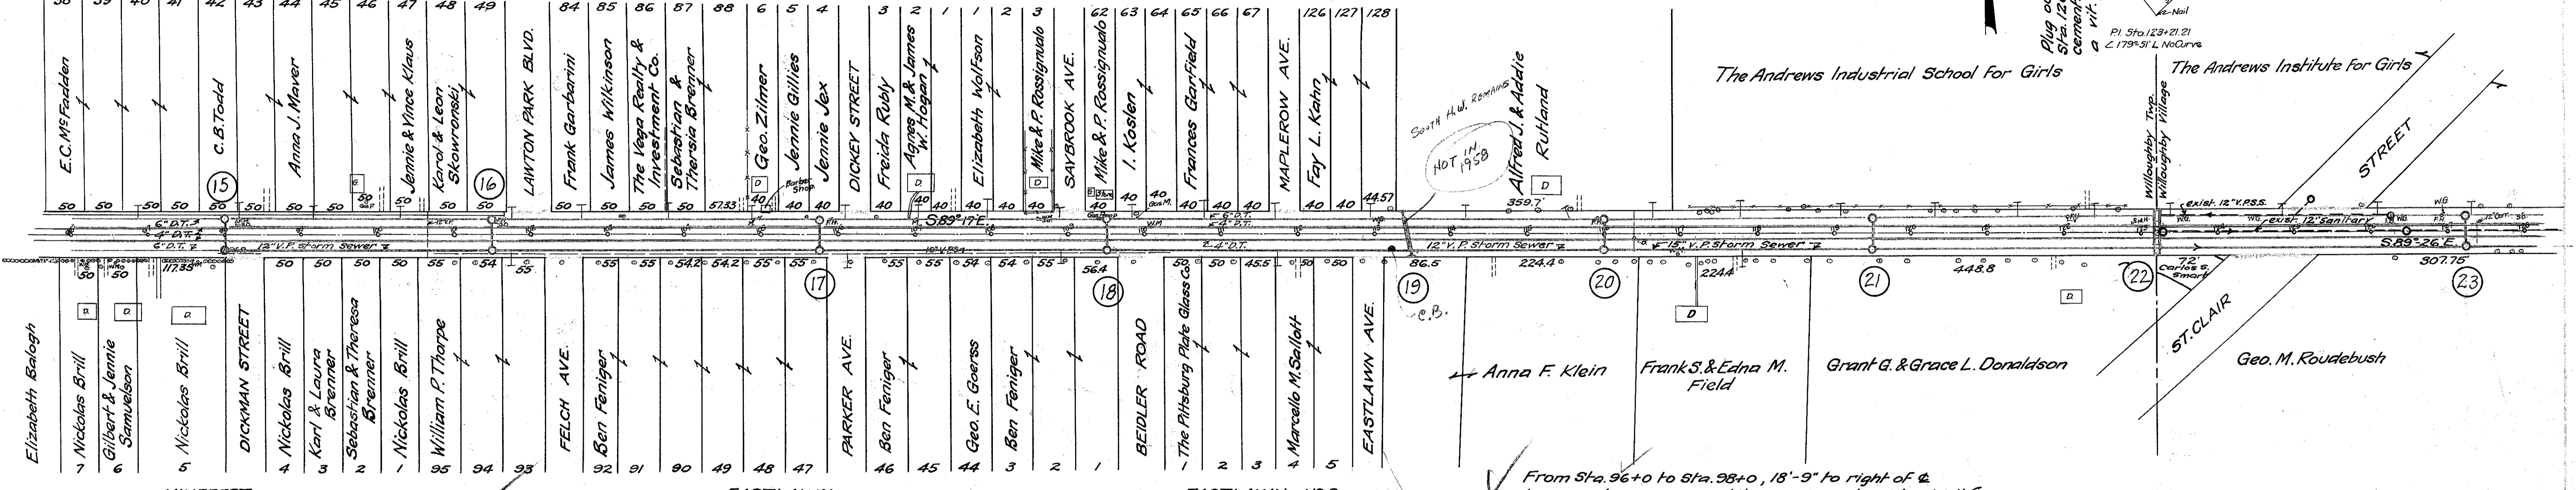 38 39 40 41 42 43 44 45 46 47 48 49 84 85 86 87 88 6 5 4 3 2 1 1 2 3 62 63 64 65 66 67 126 127 128
E.C. McFadden
C.B. Todd
Anna J. Maver
Jennie & Vince Klaus
Karol & Leon
Skowronski
LAWTON PARK BLVD.
Frank Garbarini
James Wilkinson
The Vega Realty &
Investment Co.
Sebastian &
Thersia Brenner
Geo. Zilmer
Jennie Gillies
Jennie Jex
DICKEY STREET
Freida Rubly
Agnes M. & James
W. Hogan
Elizabeth Wolfson
Mike & P. Rossignualo
SAYBROOK AVE.
Mike & P. Rossignualo
I. Koslen
Frances Garfield
MAPLEROW AVE.
Fay L. Kahn
SOUTH H.W. REMAINS
NOT IN
1958
Alfred J. & Addie
Rutland
The Andrews Industrial School For Girls
The Andrews Institute For Girls
Plug
Sta.
cement
a vit.
Nail
P.I. Sta. 123+21.21
∠ 179°51' L No Curve
Willoughby Twp.
Willoughby Village
STREET
Barber
Shop
15 16
50 50 50 50 50 50 50 50 50 50 50 50 57.33 40 40 40 40 40 40 40 40 40 40 40 40 40 40 40 40 44.57 359.7'
6" D.T.
4" D.T.
6" D.T.
12" V.P. Storm Sewer
S 89°-17' E
6" D.T.
4" D.T.
4" D.T.
12" V.P. Storm Sewer
15" V.P. Storm Sewer
exist. 12" V.P.S.S.
exist. 12" Sanitary
S 89°-26' E
50 50 117.35 50 50 50 50 55 54 55 55 54.2 54.2 55 55 55 54 54 55 56.4 50 50 45.5 50 50 86.5 224.4 224.4 448.8 72' 307.75
Carlos S.
Smart
17 18 19 20 21 22 23
C.B.
Elizabeth Balogh
Nickolas Brill
Gilbert & Jennie
Samuelson
Nickolas Brill
DICKMAN STREET
Nickolas Brill
Karl & Laura
Brenner
Sebastian & Theresa
Brenner
Nickolas Brill
William P. Thorpe
FELCH AVE.
Ben Feniger
PARKER AVE.
Ben Feniger
Geo. E. Goerss
Ben Feniger
BEIDLER ROAD
The Pittsburg Plate Glass Co.
Marcello M. Sallott
EASTLAWN AVE.
Anna F. Klein
Frank S. & Edna M.
Field
Grant G. & Grace L. Donaldson
ST. CLAIR
Geo. M. Roudebush
7 6 5 4 3 2 1 95 94 93 92 91 90 49 48 47 46 45 44 3 2 1 1 2 3 4 5
From Sta. 96+0 to Sta. 98+0, 18'-9" to right of ℄